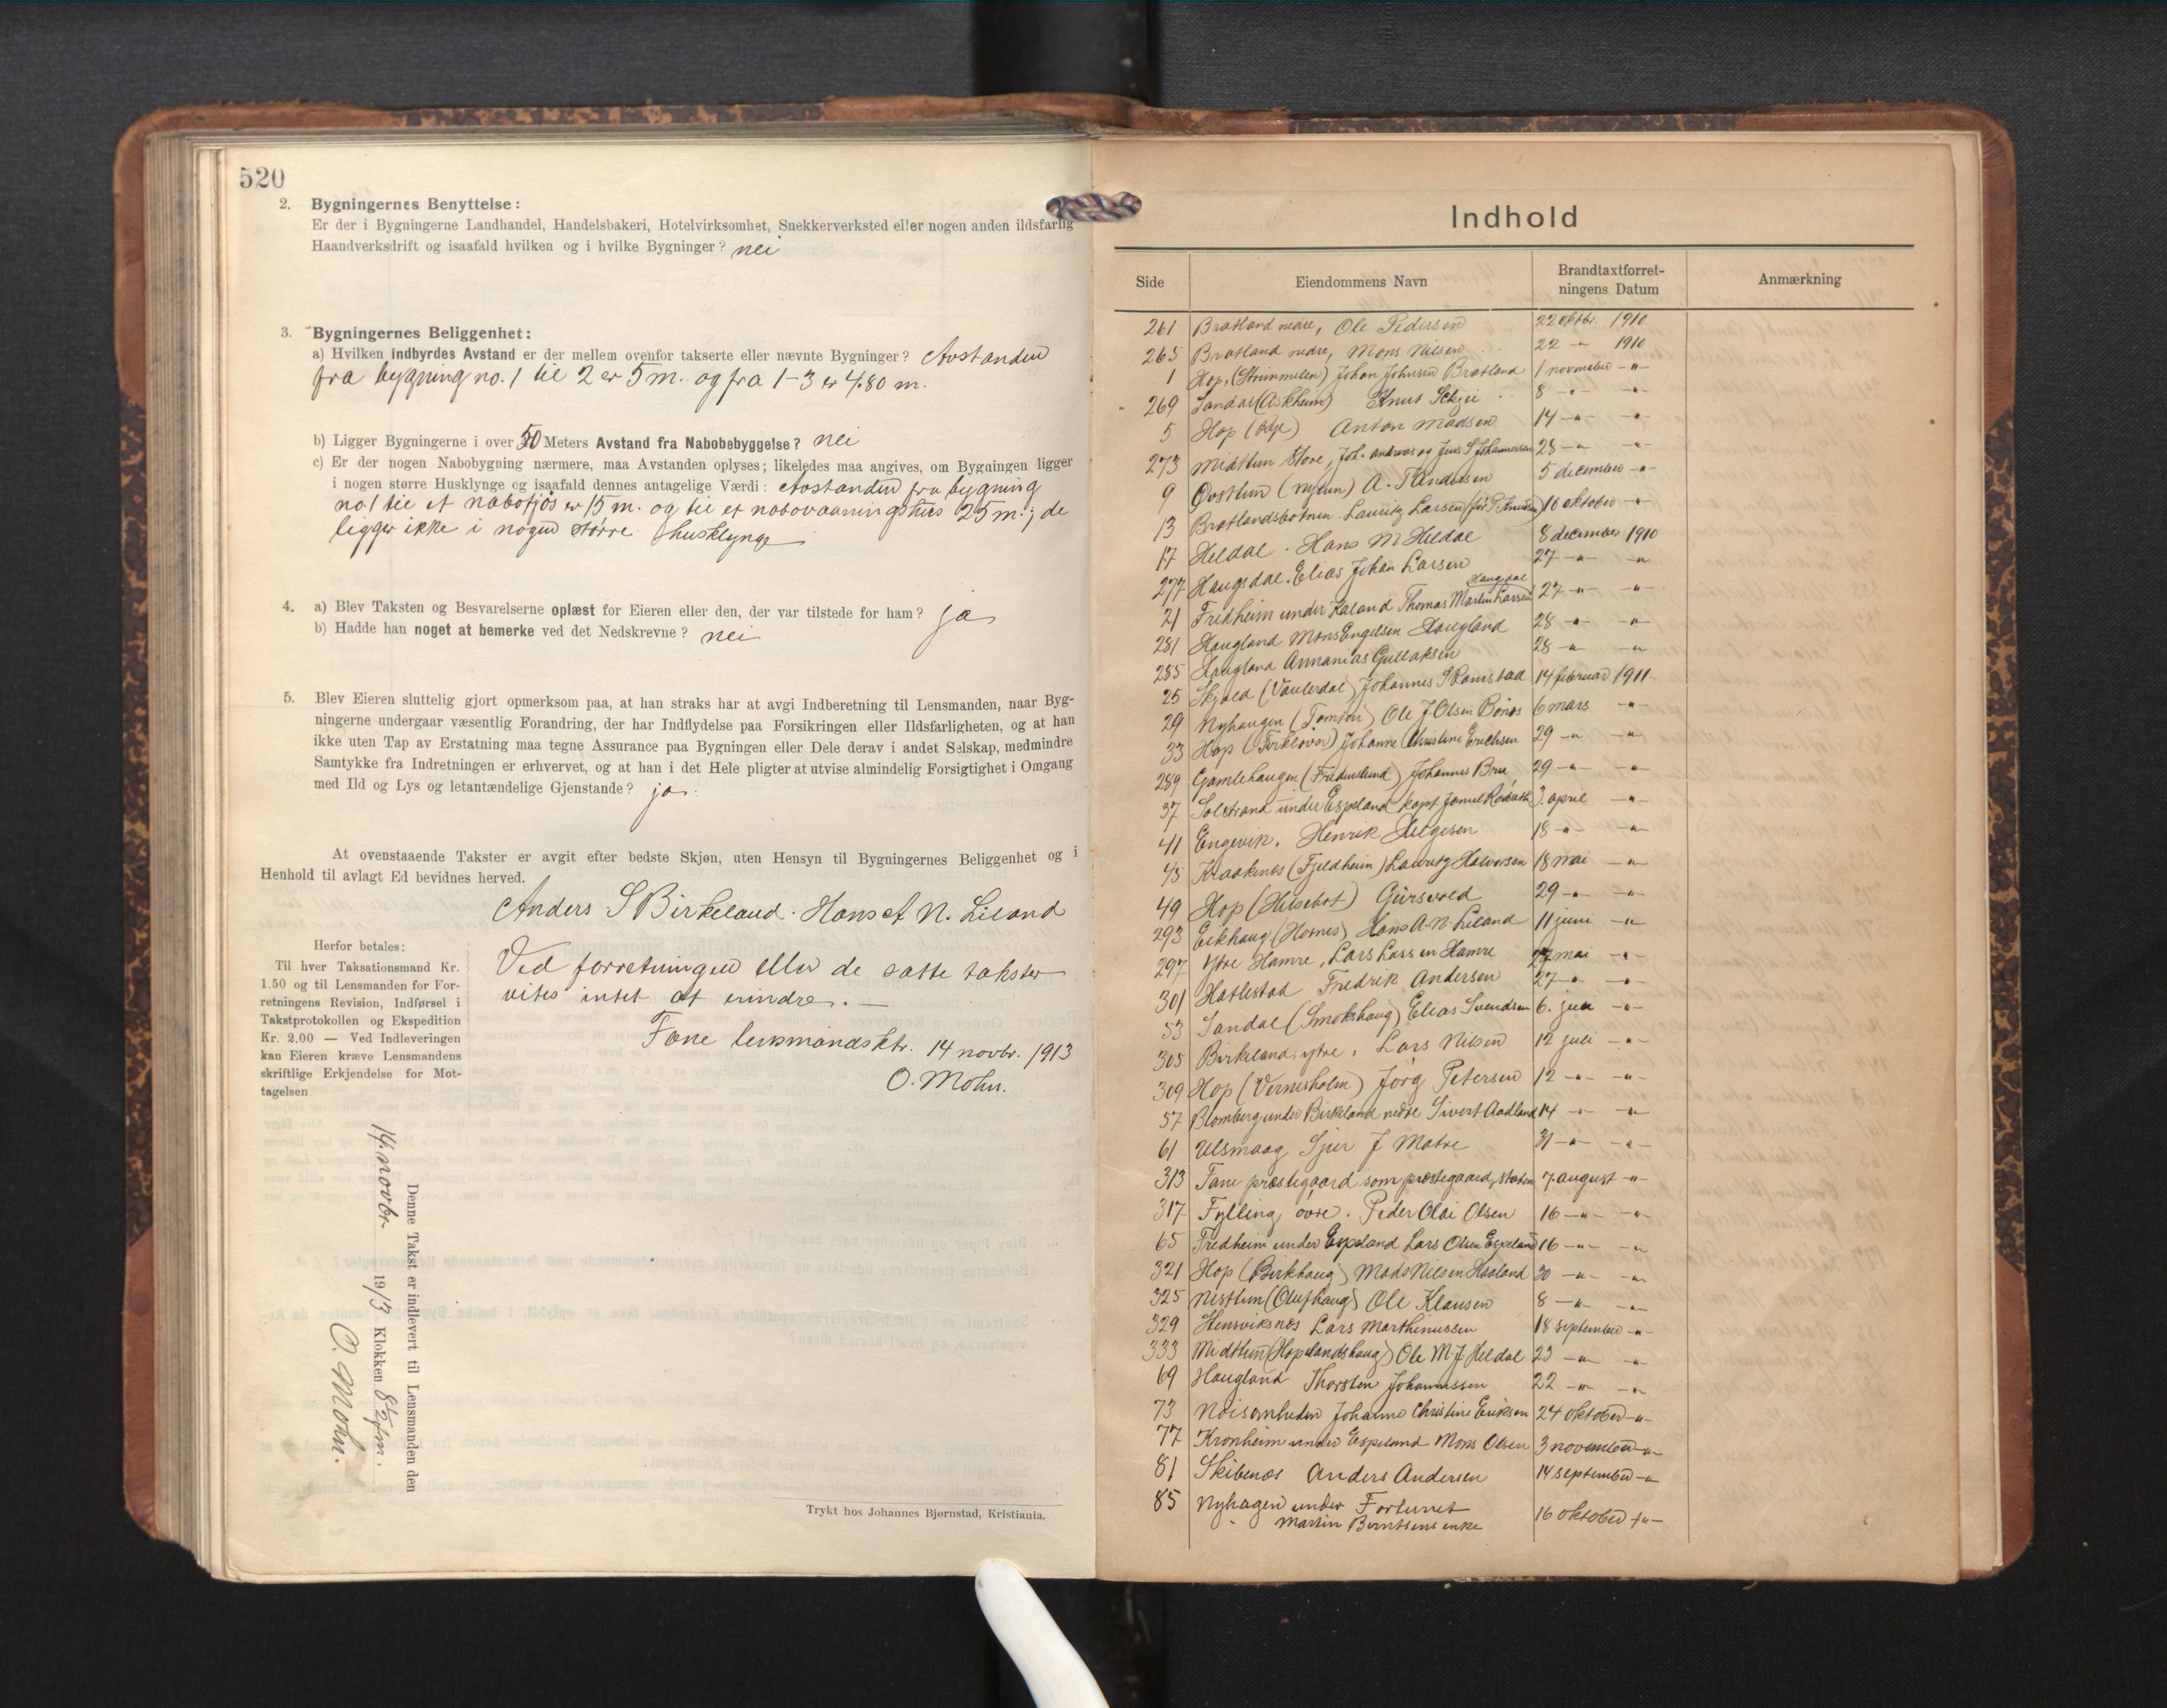 520
2. Bygningernes Benyttelse:
Er der i Bygningerne Landhandel, Handelsbakeri, Hotelvirksomhet, Snekkerverksted eller nogen anden ildsfarlig
Haandverksdrift og isaafald hvilken og i hvilke Bygninger? nei
3. Bygningernes Beliggenhet:
a) Hvilken indbyrdes Avstand er der mellem ovenfor takserte eller nævnte Bygninger? Avstanden
fra bygning no. 1 til 2 er 5 m. og fra 1-3 er 4.80 m.
b) Ligger Bygningerne i over 50 Meters Avstand fra Nabobebyggelse? nei
c) Er der nogen Nabobygning nærmere, maa Avstanden oplyses; likeledes maa angives, om Bygningen ligger
i nogen større Husklynge og isaafald dennes antagelige Værdi: Avstanden fra bygning
no. 1 til et nabofjøs er 15 m. og til et nabovaaningshus 25 m.; de
ligger ikke i nogen større husklynge
4. a) Blev Taksten og Besvarelserne oplæst for Eieren eller den, der var tilstede for ham? ja
b) Hadde han noget at bemerke ved det Nedskrevne? nei
5. Blev Eieren sluttelig gjort opmerksom paa, at han straks har at avgi Indberetning til Lensmanden, naar Byg-
ningerne undergaar væsentlig Forandring, der har Indflydelse paa Forsikringen eller Ildsfarligheten, og at han
ikke uten Tap av Erstatning maa tegne Assurance paa Bygningen eller Dele derav i andet Selskap, medmindre
Samtykke fra Indretningen er erhvervet, og at han i det Hele pligter at utvise almindelig Forsigtighet i Omgang
med Ild og Lys og letantændelige Gjenstande? ja.
At ovenstaaende Takster er avgit efter bedste Skjøn, uten Hensyn til Bygningernes Beliggenhet og i
Henhold til avlagt Ed bevidnes herved.
Anders S Birkeland. Hans A N. Liland
Herfor betales:
Til hver Taksationsmand Kr.
1.50 og til Lensmanden for For-
retningens Revision, Indførsel i
Takstprotokollen og Ekspedition
Kr. 2.00 — Ved Indleveringen
kan Eieren kræve Lensmandens
skriftlige Erkjendelse for Mot-
tagelsen
Ved forretningen eller de satte takster
vites intet at erindre. —
Fane lensmandsktr. 14 novbr. 1913
O. Mohn.
Denne Takst er indlevert til Lensmanden den
14. novbr 1913 Klokken 8½ fm.
O. Mohn.
Trykt hos Johannes Bjørnstad, Kristiania.
Indhold
Side Eiendommens Navn Brandtaxtforret-ningens Datum Anmærkning
261 Bratland nedre, Ole Pedersen 22 oktbr. 1910
265 Bratland nedre, Mons Nilsen 22 -"- 1910
1 Hop, Johan Johnsen Bratland 1 november -"-
269 Sandal (Askheim) Knut 8 -"- -"-
5 Hop Anton Madsen 14 -"- -"-
273 Midttun Store, Joh. Andreas og Jens S Johannessen 28 -"- -"-
9 Øvsttun (Nytun) A. T Andersen 5 december -"-
13 Bratlandsbotnen Lauritz Larsen 16 oktober -"-
17 Heldal. Hans M Heldal 8 december 1910
277 Haugsdal. Elias Johan Larsen 27 -"- -"-
21 Fredheim under Kaland Thomas Martin Larsen Haugsdal 27 -"- -"-
281 Haugland Mons Engelsen Haugland 28 -"- -"-
285 Haugland Annanias Gullaksen 28 -"- -"-
25 Skjold Johannes S Ramstad 14 februar 1911
29 Nyhaugen Ole J Olsen Bønes 6 mars -"-
33 Hop Johanne Christine Erichsen 29 -"- -"-
289 Gamlehaugen Johannes Brue 29 -"- -"-
37 Solstrand under Espeland kapt 3. april -"-
41 Engevik. Henrik Helgesen 18 -"- -"-
45 Kraakenes (Fjeldheim) Lauritz Halvorsen 18 mai -"-
49 Hop 29 -"- -"-
293 Eikhaug (Hornes) Hans A. N. Liland 11 juni -"-
297 Ytre Hamre, Lars Larsen Hamre 27 mai -"-
301 Hatlestad Fredrik Andersen 27 -"- -"-
53 Sandal (Smøkshaug) Elias Svendsen 6. juli -"-
305 Birkeland, ytre, Lars Nilsen 12 juli -"-
309 Hop (Vernesholm) Jørg Petersen 12 -"- -"-
57 Blomberg under Birkeland nedre Sivert Aadland 14 -"- -"-
61 Ulsmaag Sjur J Matre 31 -"- -"-
313 Fane præstegaard som præstegaard, staten 7. august -"-
317 Fylling øvre. Peder Olai Olsen 16 -"- -"-
65 Fredheim under Espeland Lars Olsen Espeland 16 -"- -"-
321 Hop (Birkhaug) Mads Nilsen Haaland 30 -"- -"-
325 Nesttun (Olufhaug) Ole Klausen 8 -"- -"-
329 Hensviksnes Lars Marthinussen 18 september -"-
333 Midttun (Hopelandshaug) Ole M. J Heldal 23 -"- -"-
69 Haugland Thorsten Johannessen 22 -"- -"-
73 Nøisomheden Johanne Christine Eriksen 24 oktober -"-
77 Kronheim under Espeland Mons Olsen 3 november -"-
81 Skibenes Anders Andersen 14 september -"-
85 Nyhagen under Fortunet
Martin Berntsens enke 16 oktober -"-